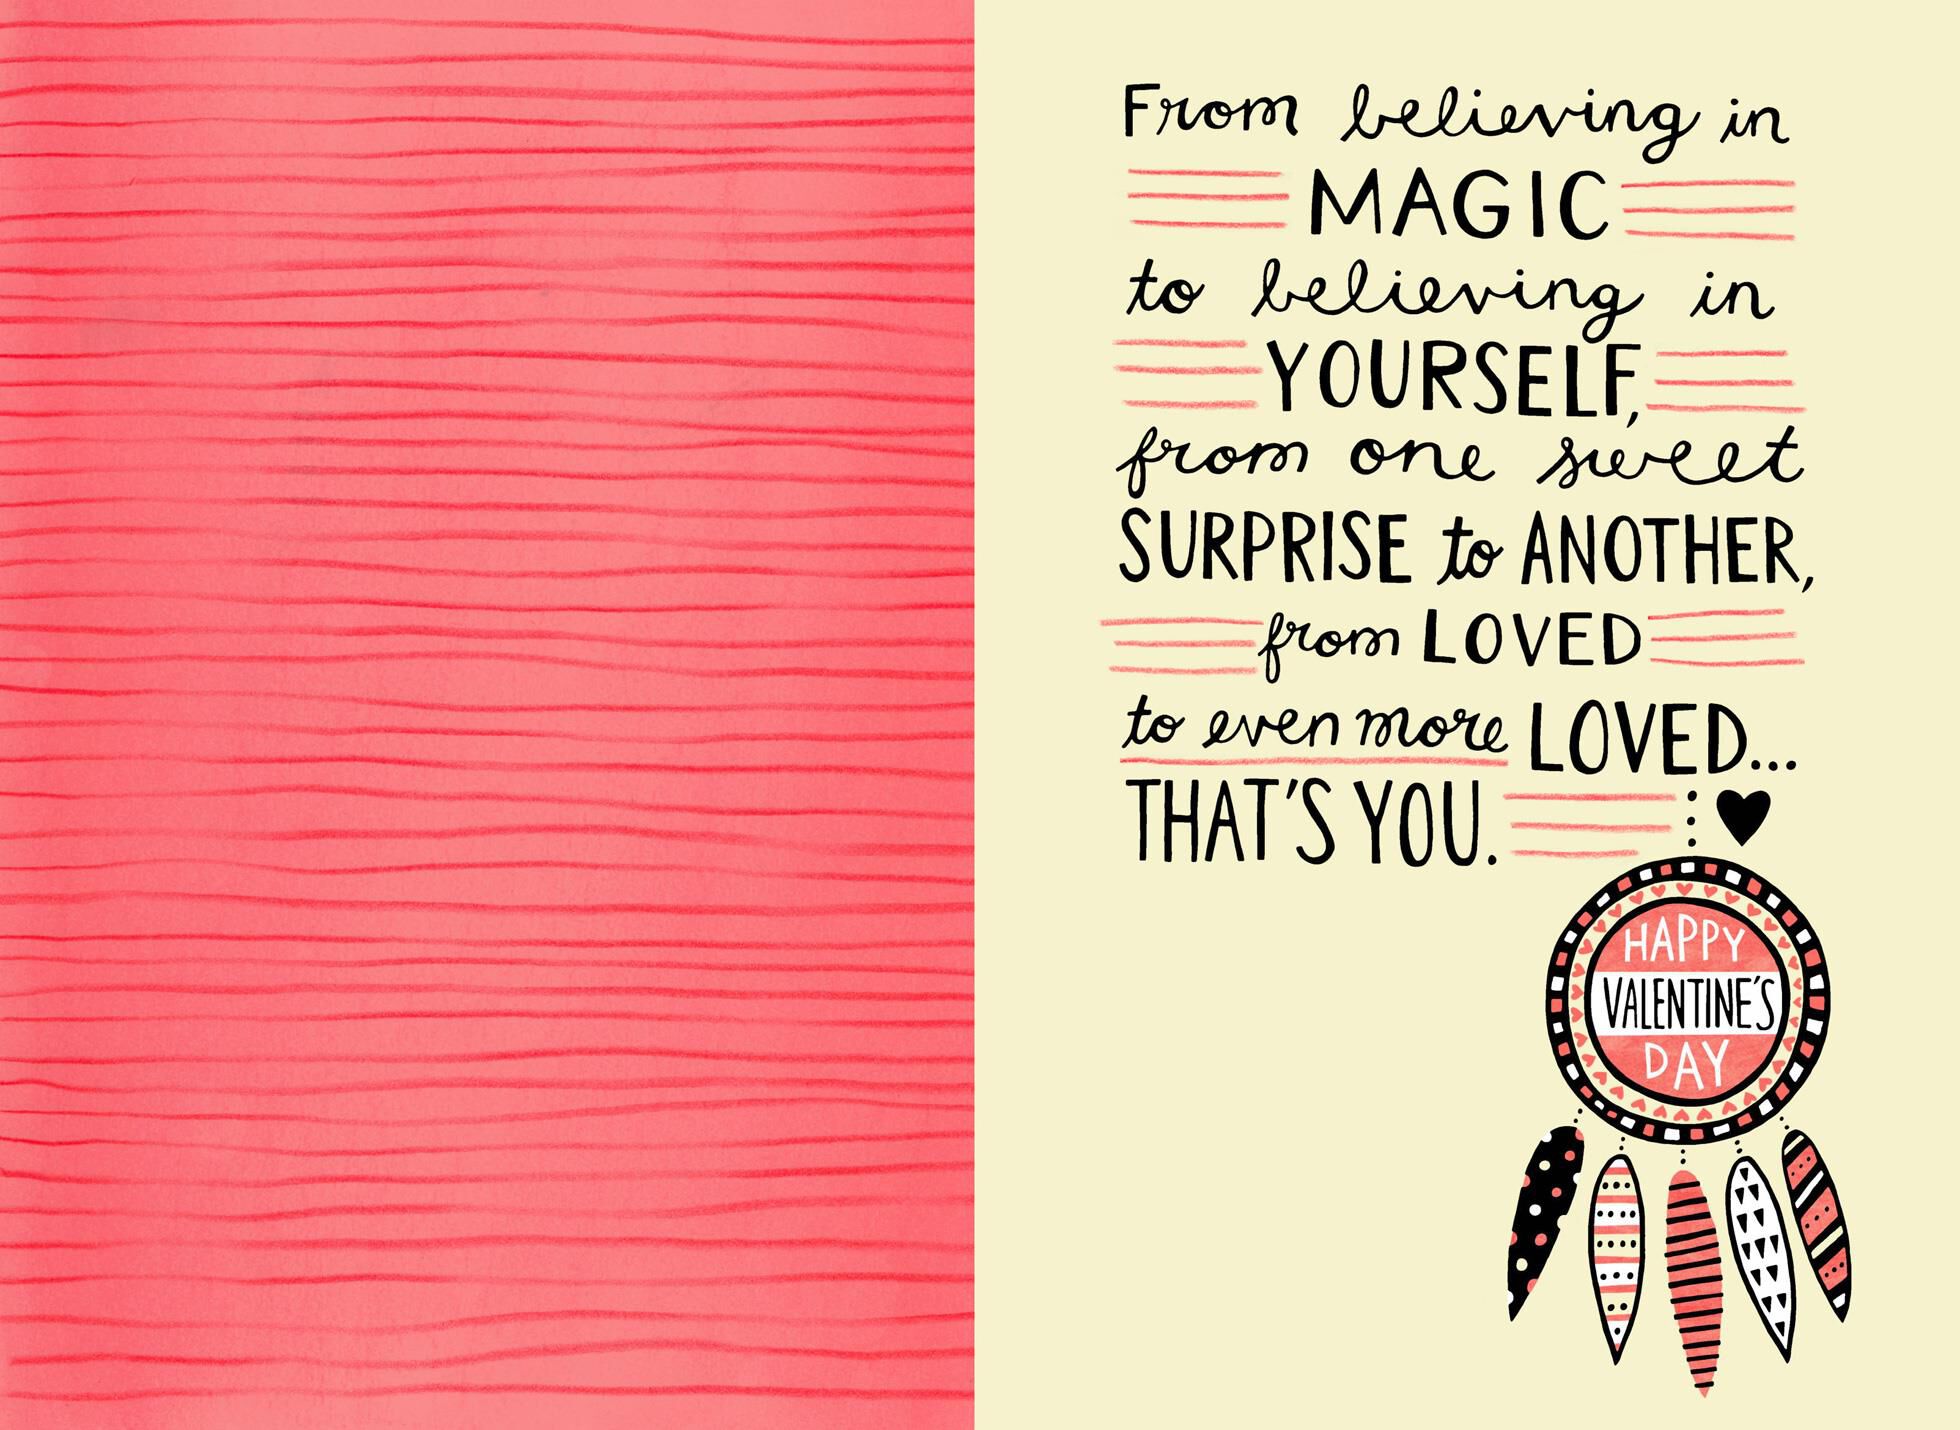 From believing in
MAGIC
to believing in
YOURSELF,
from one sweet
SURPRISE to ANOTHER,
from LOVED
to even more LOVED...
THAT'S YOU.
HAPPY
VALENTINE'S
DAY